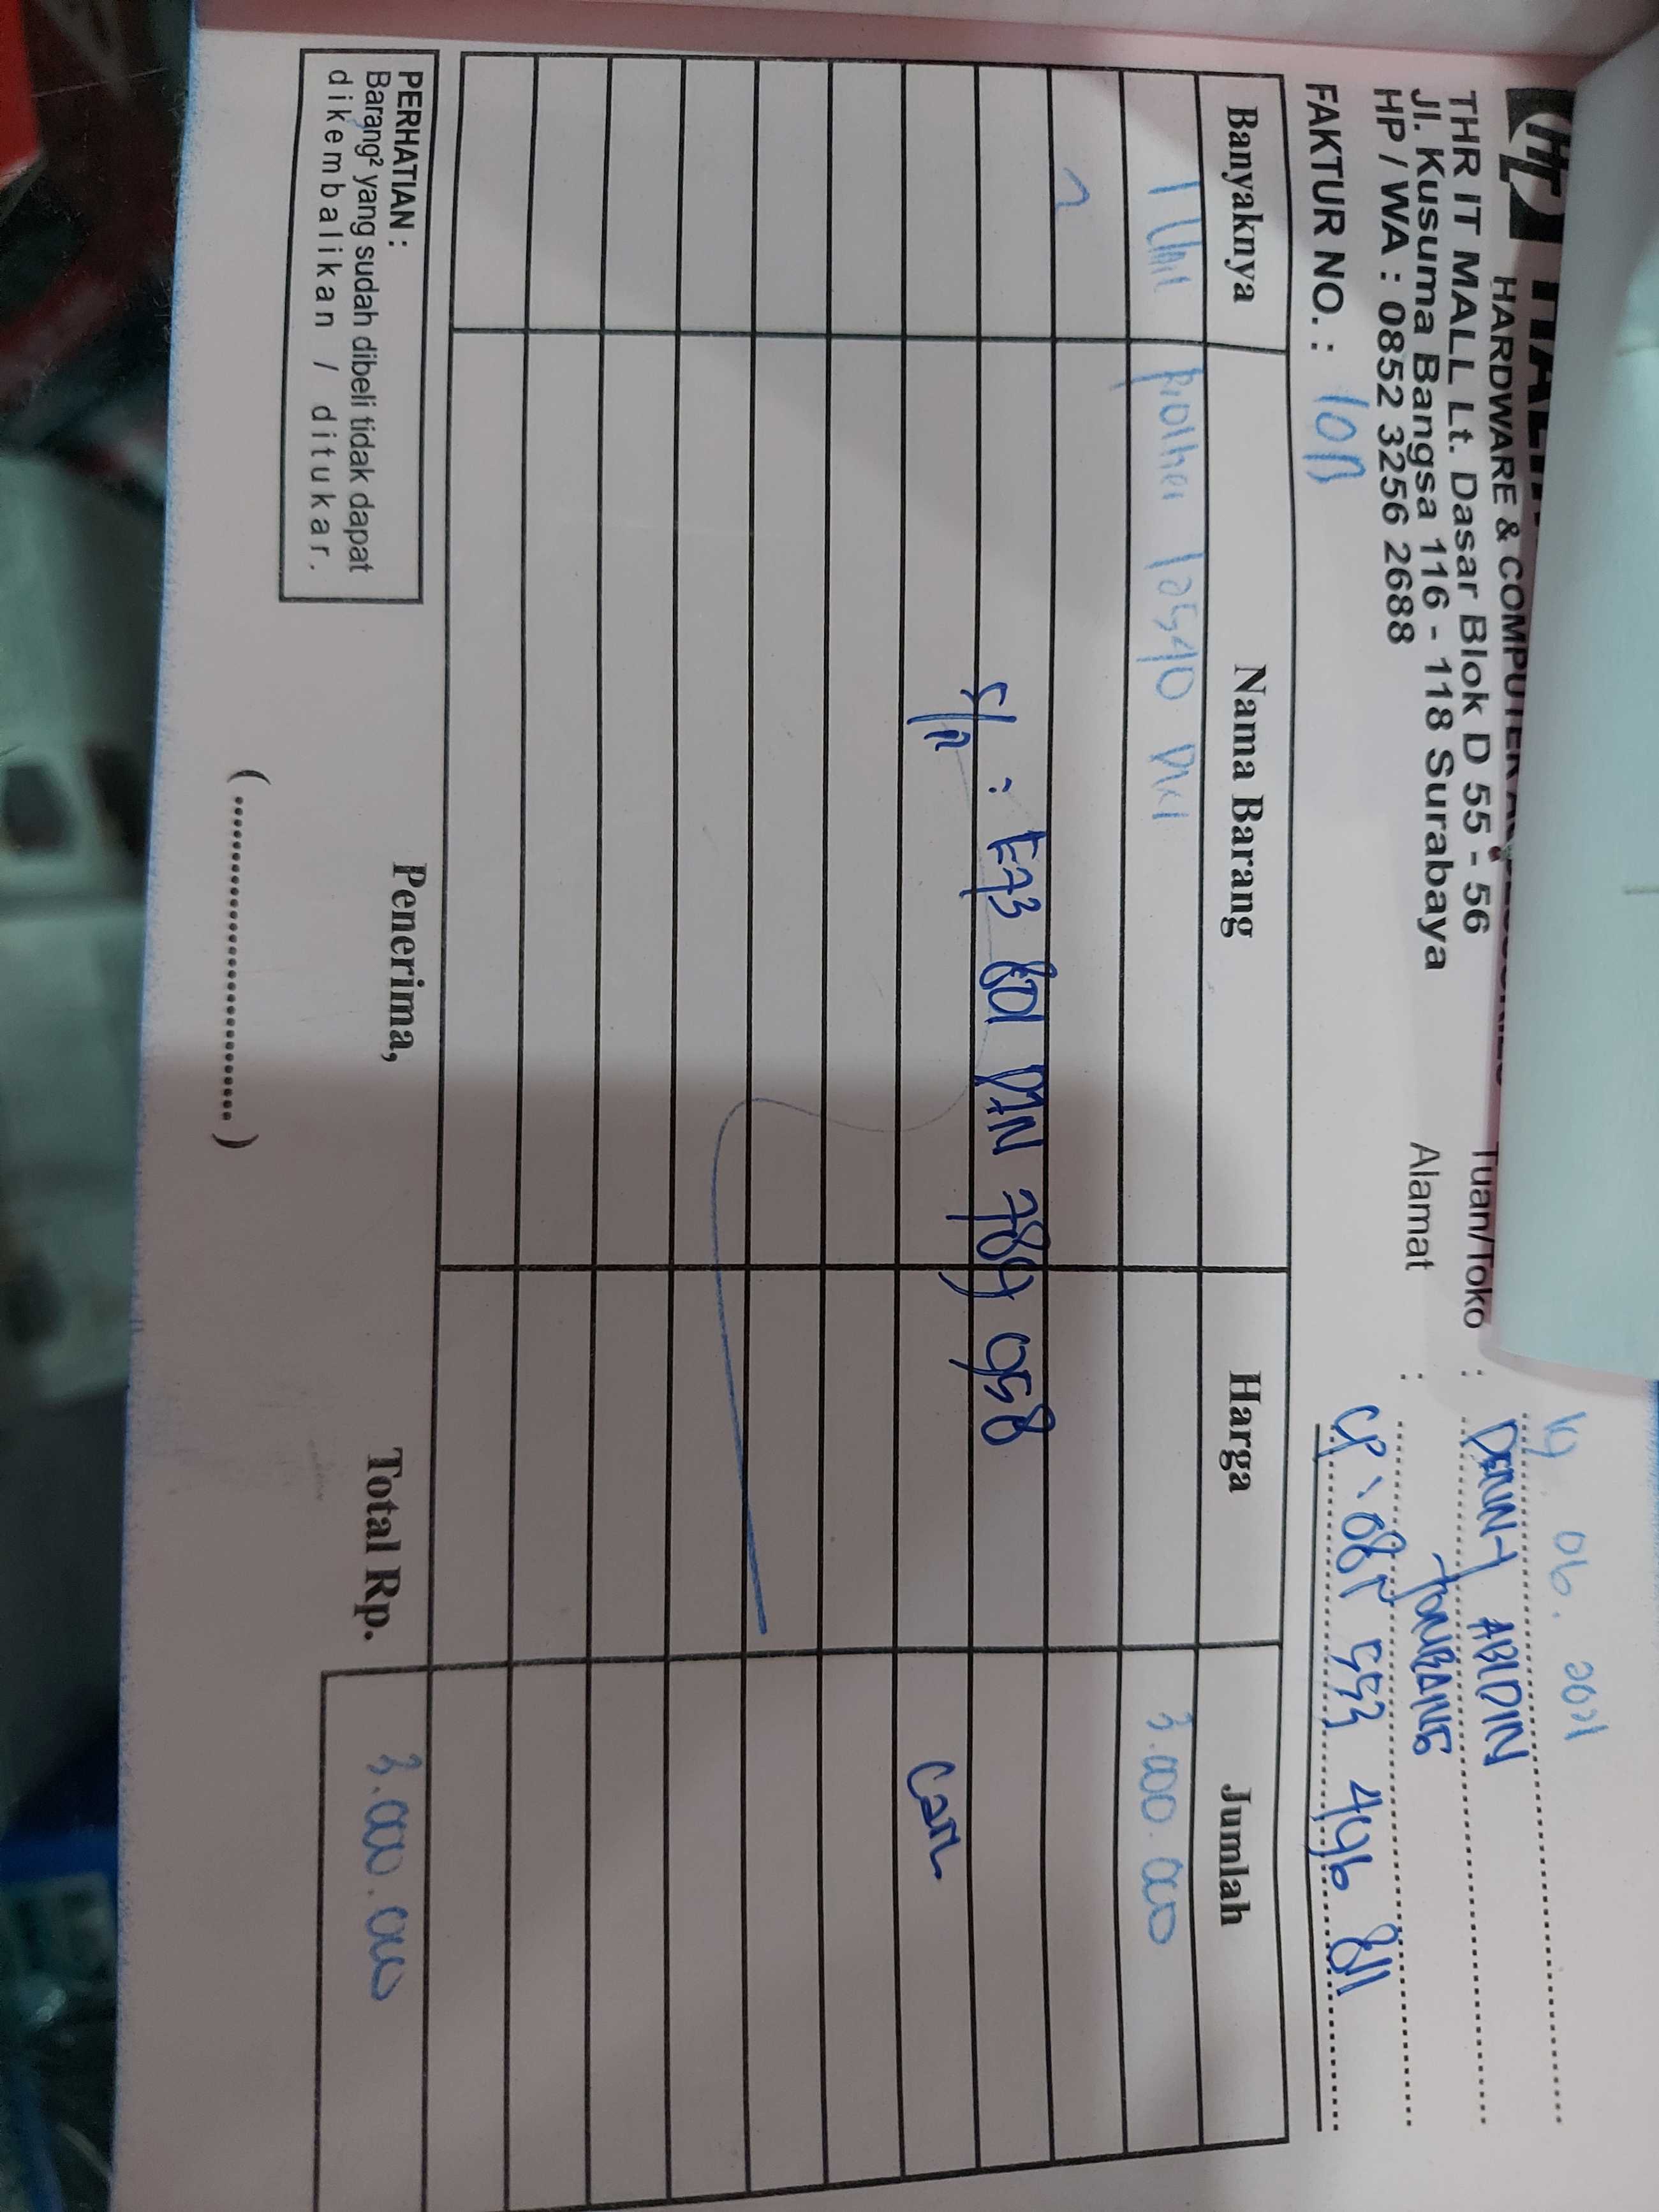 HARDWARE & COMPUTER
THR IT MALL Lt. Dasar Blok D 55 - 56
Jl. Kusuma Bangsa 116 - 118 Surabaya
HP / WA : 0852 3256 2688
06. 2021
Tuan/Toko : DENNY ABIDIN
Alamat : JOMBANG
FAKTUR NO. :
CP. 081 553 496 811
Banyaknya Nama Barang Harga Jumlah
1 Unit Brother 3.000.000
S/N : E73 801 M1N 789 958
Cash
PERHATIAN :
Barang² yang sudah dibeli tidak dapat
dikembalikan / ditukar.
Penerima,
(..............................)
Total Rp. 3.000.000